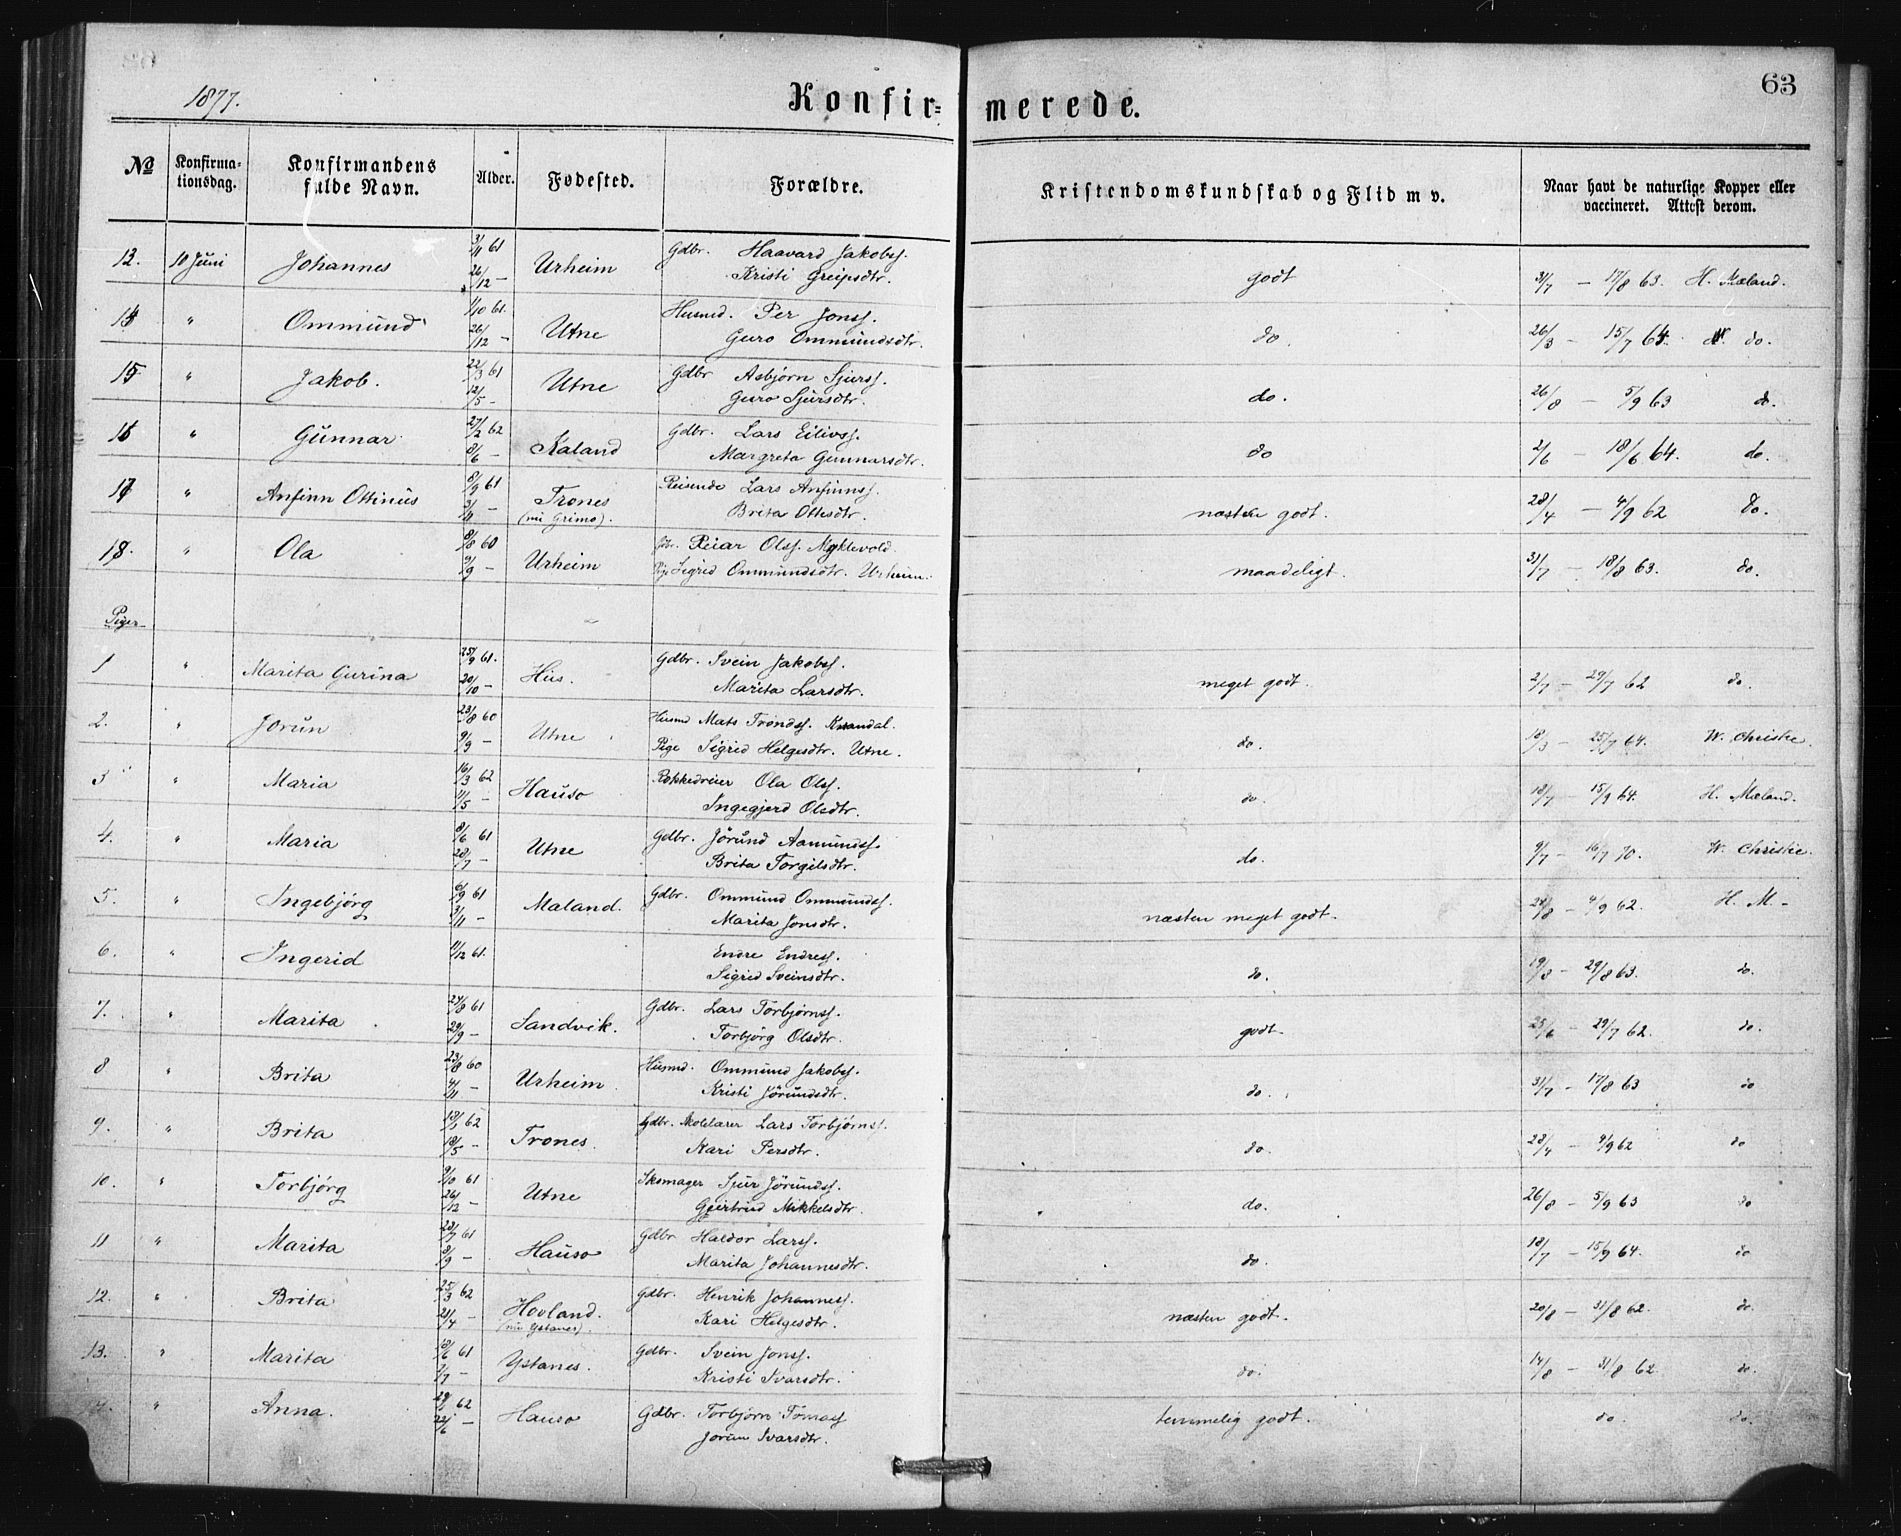 63
1877.
Konfir= merede.
No
Konfirma-
tionsdag.
Konfirmandens
fulde Navn.
Alder.
Fødested.
Forældre.
Kristendomskundskab og Flid m v.
Naar havt de naturlige Kopper eller
vaccineret. Attest derom.
13. 10 Juni Johannes 3/11 61 Urheim Gdbr. Haavard Jakobss. godt 31/7 — 17/8 63. H. Mæland.
26/12 — Kristi Greipsdtr.
14 " Ommund 1/10 61. Utne Husmd. Per Jonss. do. 26/3 — 15/7 64. do.
26/12 — Guro Ommundsdtr.
15 " Jakob. 22/3 61 Utne Gdbr Asbjørn Sjurss. do. 26/8 — 5/9 63 do.
12/5 — Guro Sjursdtr.
16 " Gunnar 27/2 62 Kaland Gdbr. Lars Eilivss. do 2/6 — 18/6 64. do.
8/6 — Margreta Gunnarsdtr.
17 " Anfinn Ottinus 8/9 61 Trones Reisende Lars Anfinnss. næsten godt. 28/4 — 4/9 62 do.
3/11 — (nu Grimo). Brita Ottesdtr.
18. " Ola 8/8 60 Urheim Reiar Olss. Myklevold. maadeligt. 31/7 — 18/8 63. do.
9/9 — Pige Sigrid Ommundsdtr. Urheim.
Piger
1 " Marita Gurina 25/9 61. Hus. Gdbr. Svein Jakobss. meget godt. 2/7 — 29/7 62 do.
20/10 — Marita Larsdtr.
2. " Jorun 23/8 60 Utne Husmd Mats Trondss. Kvandal. do. 18/3 — 25/7 64. W. Christie.
9/9 — Pige Sigrid Helgesdtr. Utne.
3 " Maria 16/3 62 Hauso Rokkedreier Ola Olss. do. 18/7 — 15/9 64. H. Mæland.
11/5 — Ingegjerd Olsdtr.
4. " Maria 8/6 61 Utne Gdbr. Jørund Aamundss. do. 9/7 — 16/7 70. W. Christie.
28/7 — Brita Torgilsdtr.
5. " Ingebjörg 6/9 61 Maland. Gdbr. Ommund Ommundss. næsten meget godt. 28/8 — 4/9 62. H. M.-
3/11 — Marita Jonsdtr.
6. " Ingerid 11/12 61. Endre Endress. do. 19/8 — 29/8 63. do.
Sigrid Sveinsdtr.
7. " Marita 24/8 61 Sandvik. Gdbr. Lars Torbjørnss. godt. 25/6 — 29/7 62. do.
29/9 — Torbjörg Olsdtr.
8 " Brita 23/8 60 Urheim Husmd. Ommund Jakobss. do. 31/7 — 17/8 63 do
4/11 — Kristi Jörundsdtr.
9. " Brita 18/1 62 Trones. Gdbr. Skolelærer Lars Torbjørnss. do. 28/4 — 4/9 62 do
18/5 — Kari Persdtr.
10. " Torbjörg 9/10 61 Utne Skomager Sjur Jörundss. do. 26/8 — 5/9 63 do
26/12 — Gjertrud Mikkelsdtr.
11 " Marita 28/7 61 Hauso Gdbr Haldor Larss. do. 18/7 — 15/9 64. do
8/9 — Marita Johannesdtr.
12. " Brita 25/3 62 Hovland. Gdbr. Henrik Johanness. næsten godt. 20/8 — 31/8 62. do.
21/4 — (nu Ystanes). Kari Helgesdtr.
13. " Marita 18/6 61 Ystanes. Gdbr. Svein Jonss. do. 14/8 — 31/8 62. do.
7/7 — Kristi Ivarsdtr.
" Anna. 29/1 62 Hauso Gdbr. Torbjørn Tomass temmelig godt. do. do.
22/6 — Jorun Ivarsdtr.